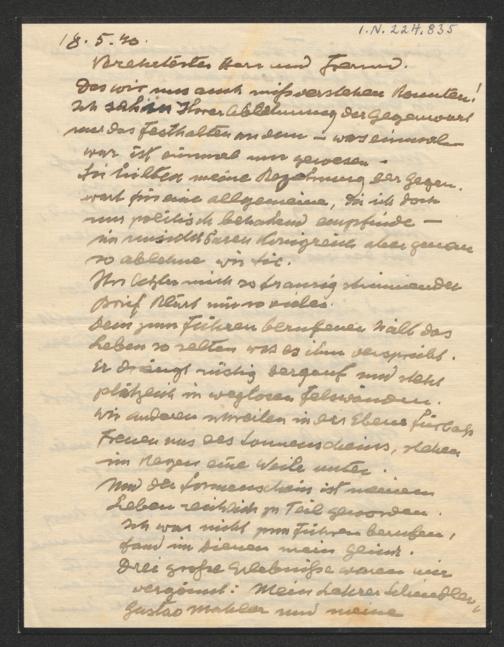 I.N. 224.835
18.5.40.
Verehrtester Herr und Freund.
Das wir uns auch mißverstehen konnten!
Ich sah in Ihrer Ablehnung der Gegenwart
nur das Festhalten an dem – was einmal
war ist einmal nur gewesen –
Sie hielten meine Bejahung der Gegen-
wart für eine allgemeine, die ich doch
nur politisch bejahend empfinde –
im unsichtbaren Königreich aber genau
so ablehne wie Sie.
Ihr letzter mich so traurig stimmender
Brief klärt mir so vieles.
Dem zum Führen berufenen hält das
Leben so selten was es ihm verspricht.
Er drängt rüstig bergauf und steht
plötzlich in weglosen Felswänden.
Wir anderen in der Ebene fürbass
Freuen uns des Sonnenscheins, stehen
im Regen eine Weile unter.
Und der Sonnenschein ist meinem
Leben reichlich zu Teil geworden.
Ich war nicht zum Führen berufen,
fand im Dienen mein
Drei große Erlebnisse waren mir
vergönnt: Mein Lehrer Schindler,
Gustav Mahler und meine